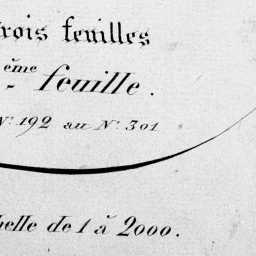 rois feuilles
ème feuille.
N.° 192 au N.° 301
belle de 1 à 2000.